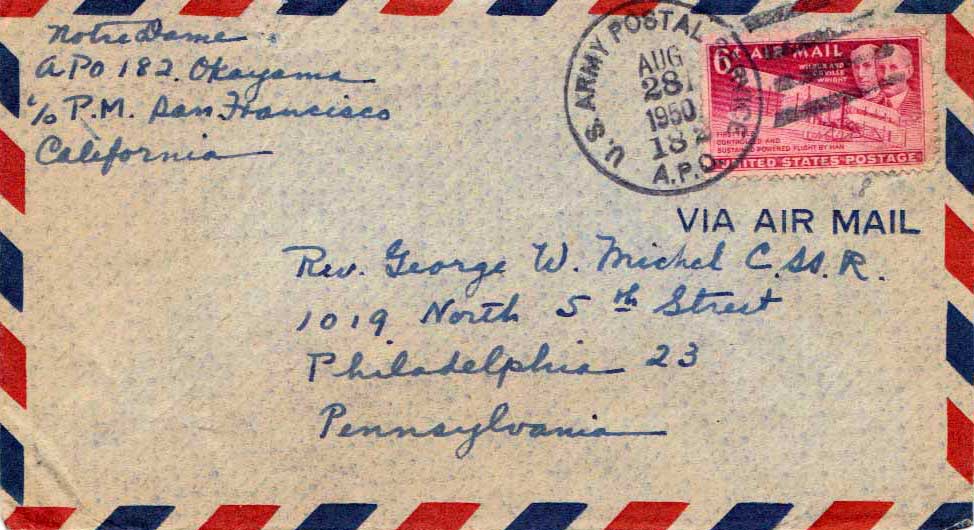 Notre Dame
A.P.O. 182. Okayama
c/o P.M. San Francisco
California
U.S. ARMY POSTAL SERVICE
AUG
28
1950
182
A.P.O.
6¢ AIR MAIL
WILBUR AND
ORVILLE
WRIGHT
FIRST
CONTROLLED AND
SUSTAINED POWERED FLIGHT BY MAN
UNITED STATES POSTAGE
VIA AIR MAIL
Rev. George W. Michel C.SS.R.
1019 North 5th Street
Philadelphia 23
Pennsylvania